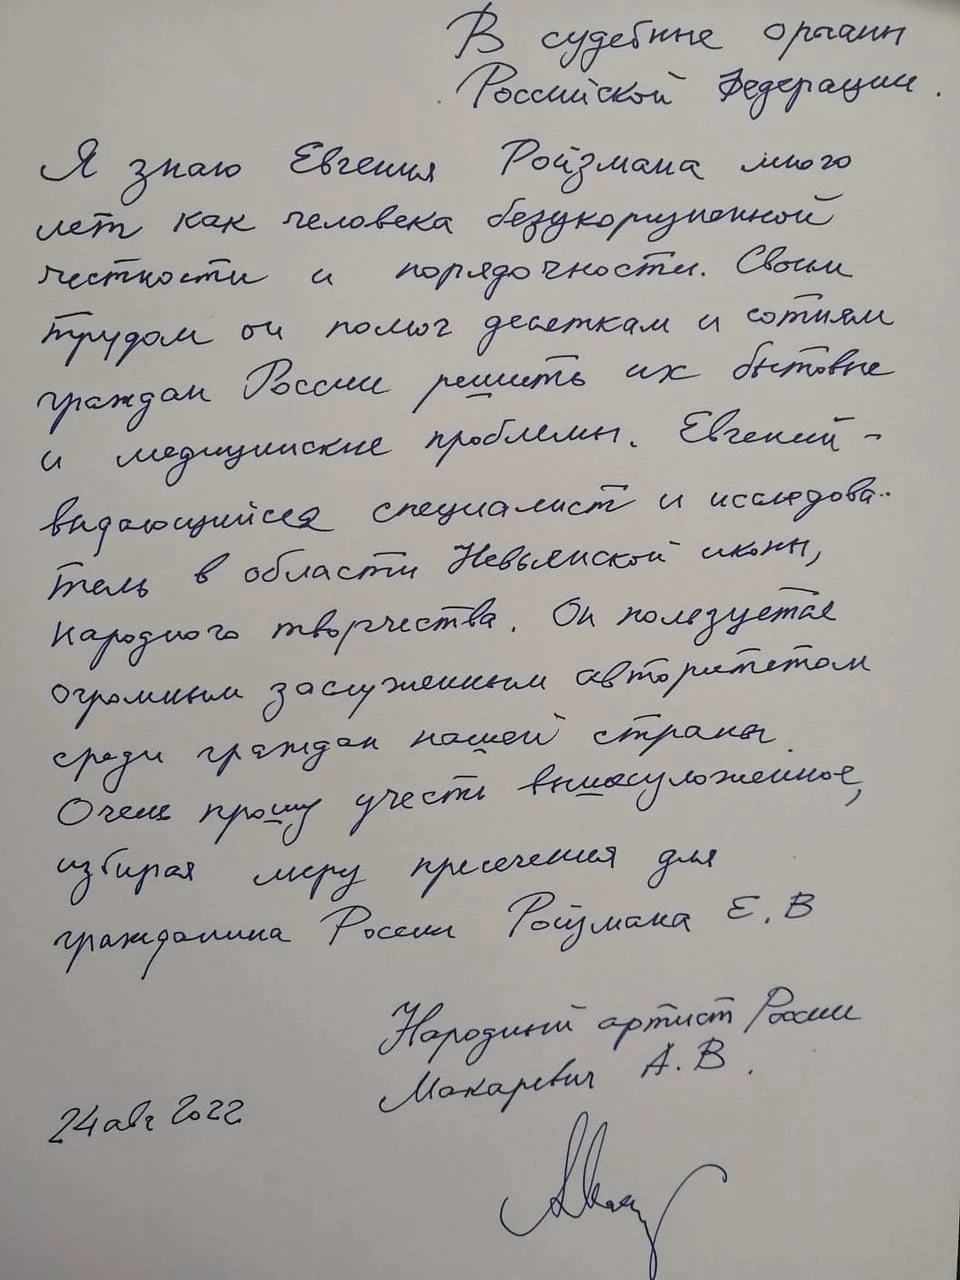 В судебные органы
Российской Федерации.
Я знаю Евгения Ройзмана много
лет как человека безукоризненной
честности и порядочности. Своим
трудом он помог десяткам и сотням
граждан России решить их бытовые
и медицинские проблемы. Евгений -
выдающийся специалист и исследова-
тель в области Невьянской иконы,
народного творчества. Он пользуется
огромным заслуженным авторитетом
среди граждан нашей страны.
Очень прошу учесть вышесуложенное,
избирая меру пресечения для
гражданина России Ройзмана Е.В
Народный артист России
Макаревич А.В.
24 авг 2022